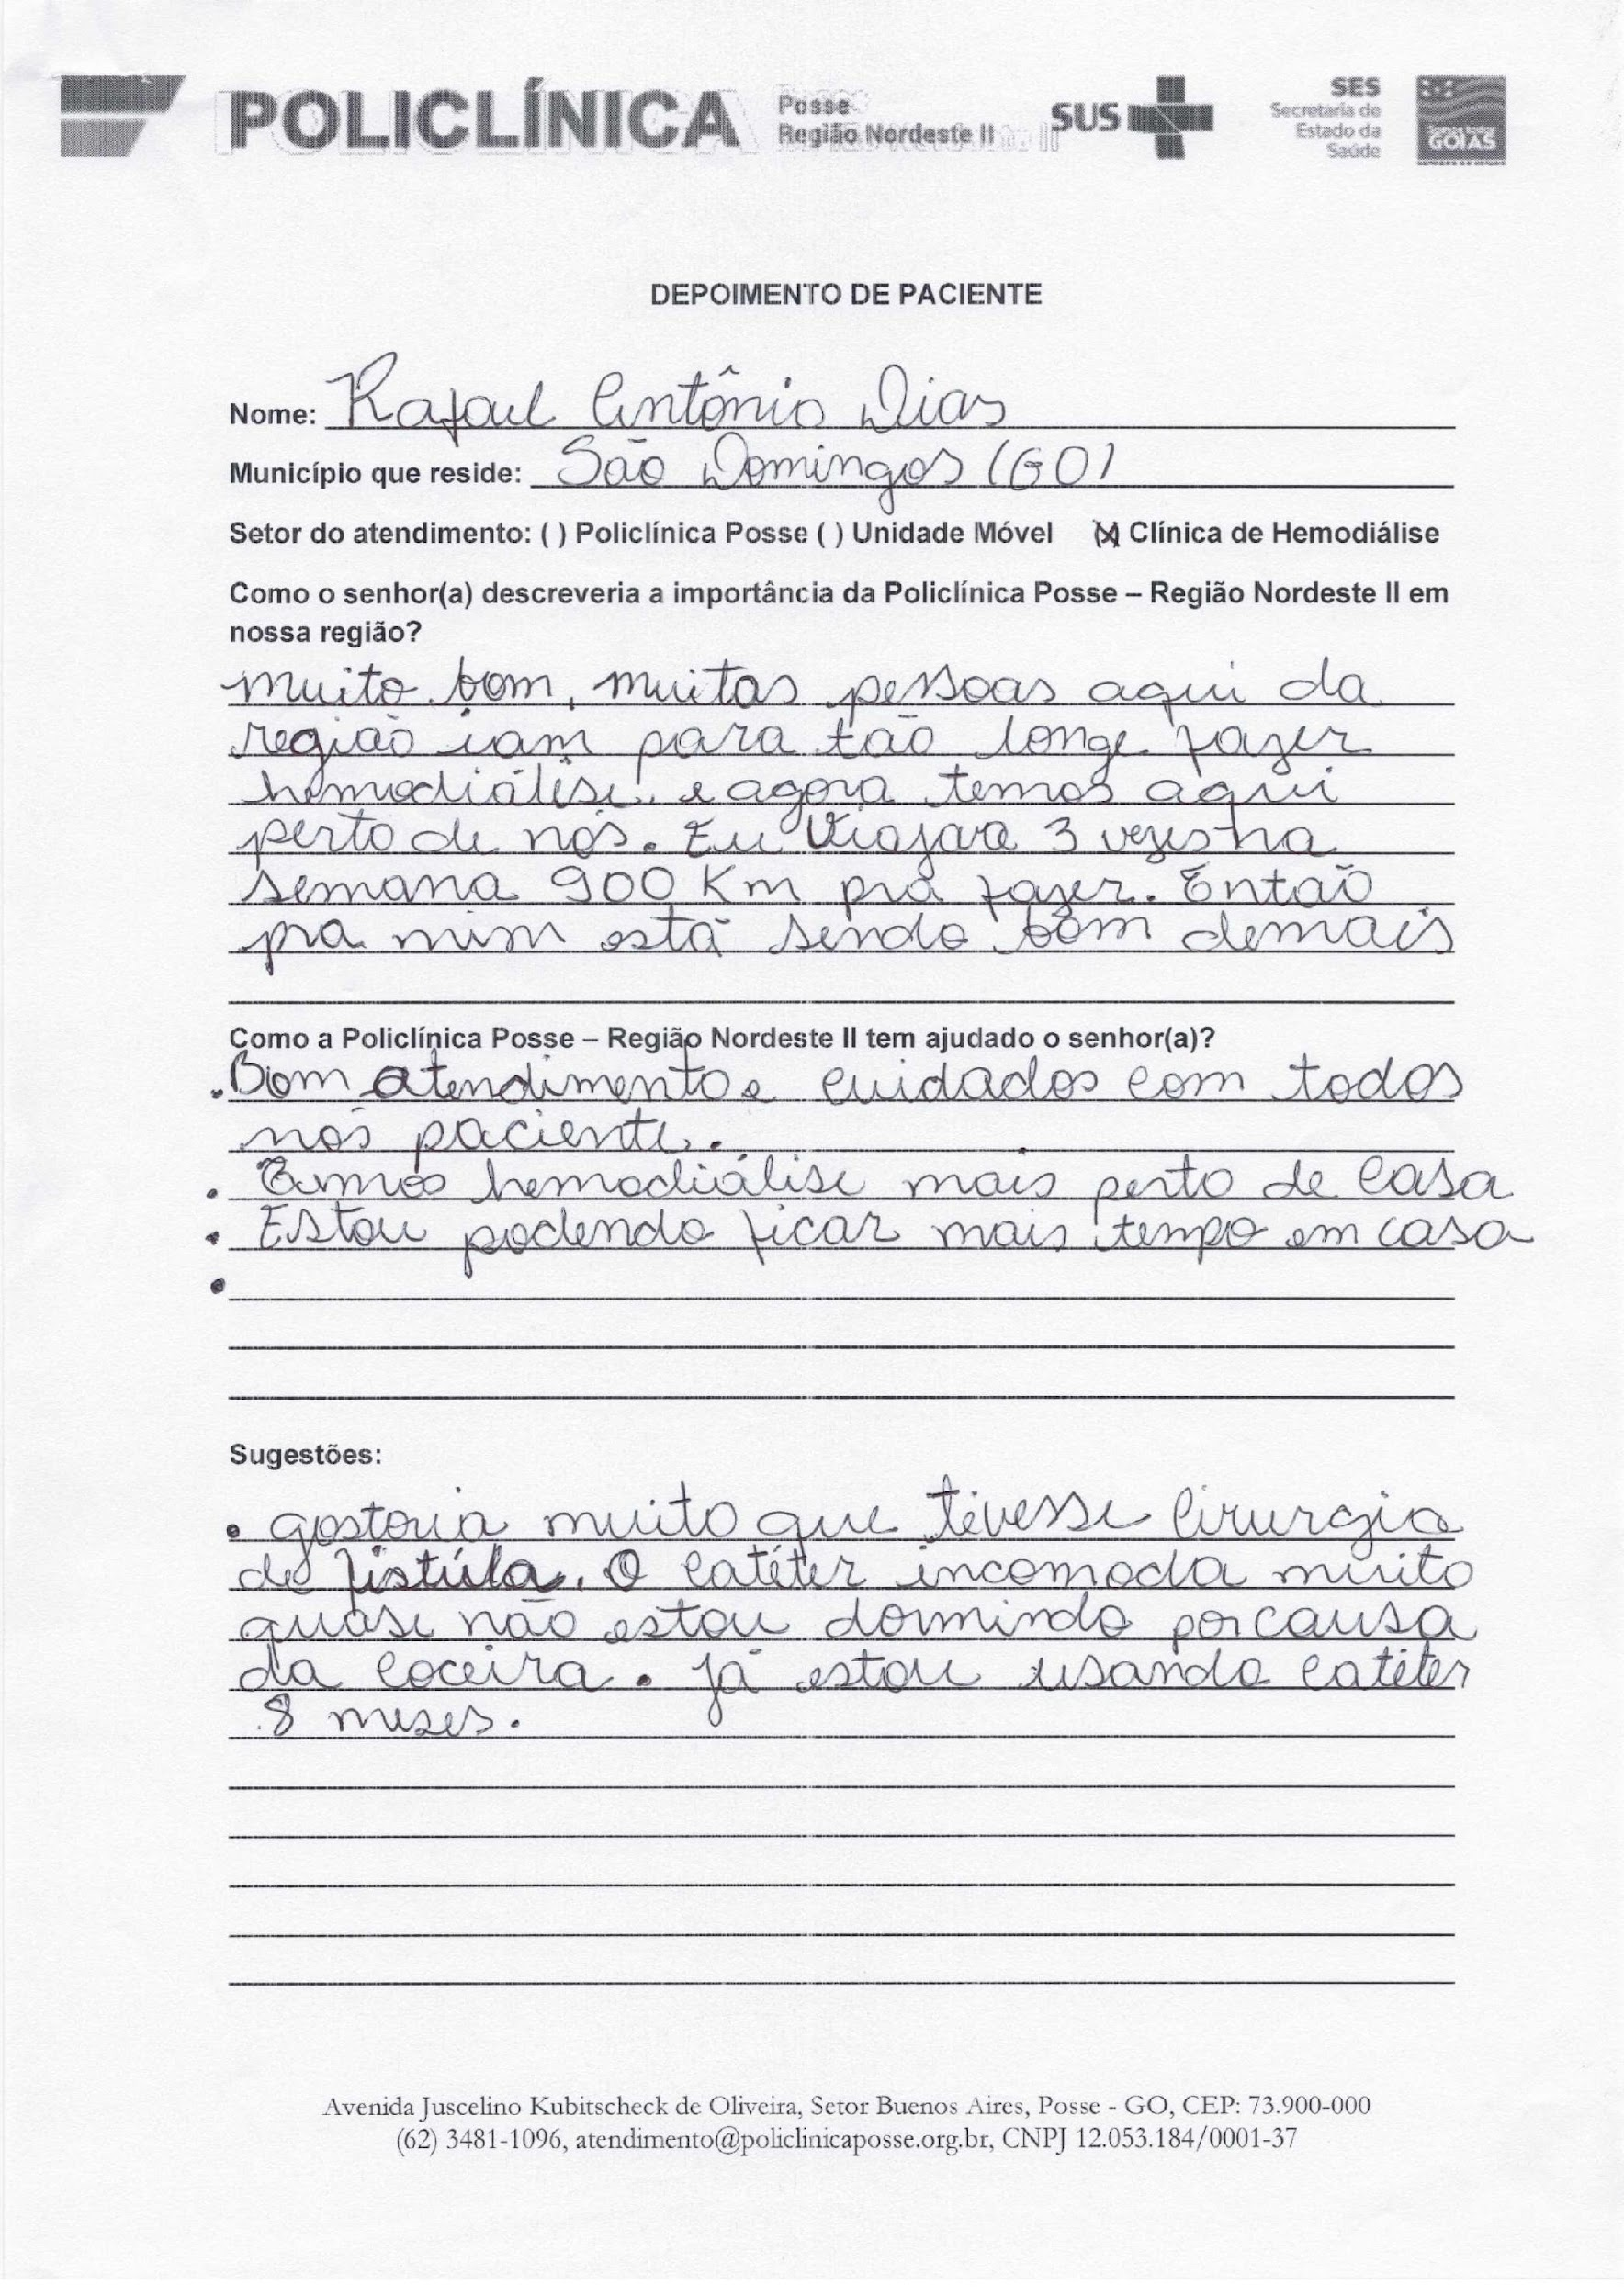 POLICLÍNICA Posse Região Nordeste II SUS SES Secretaria de Estado da Saúde GOIÁS
DEPOIMENTO DE PACIENTE
Nome: Rafael Antônio Dias
Município que reside: São Domingos (GO)
Setor do atendimento: ( ) Policlínica Posse ( ) Unidade Móvel (X) Clínica de Hemodiálise
Como o senhor(a) descreveria a importância da Policlínica Posse – Região Nordeste II em
nossa região?
muito bom, muitas pessoas aqui da
região iam para tão longe fazer
hemodiálise. e agora temos aqui
perto de nós. Eu viajava 3 vezes na
semana 900 Km pra fazer. Então
pra mim está sendo bom demais
Como a Policlínica Posse – Região Nordeste II tem ajudado o senhor(a)?
. Bom atendimento e cuidados com todos
nós paciente.
. Temos hemodiálise mais perto de casa
. Estou podendo ficar mais tempo em casa
.
Sugestões:
. gostaria muito que tivesse cirurgia
de fistúla. O catéter incomoda muito
quase não estou dormindo por causa
da coceira. já estou usando catéter
8 meses.
Avenida Juscelino Kubitscheck de Oliveira, Setor Buenos Aires, Posse - GO, CEP: 73.900-000
(62) 3481-1096, atendimento@policlinicaposse.org.br, CNPJ 12.053.184/0001-37